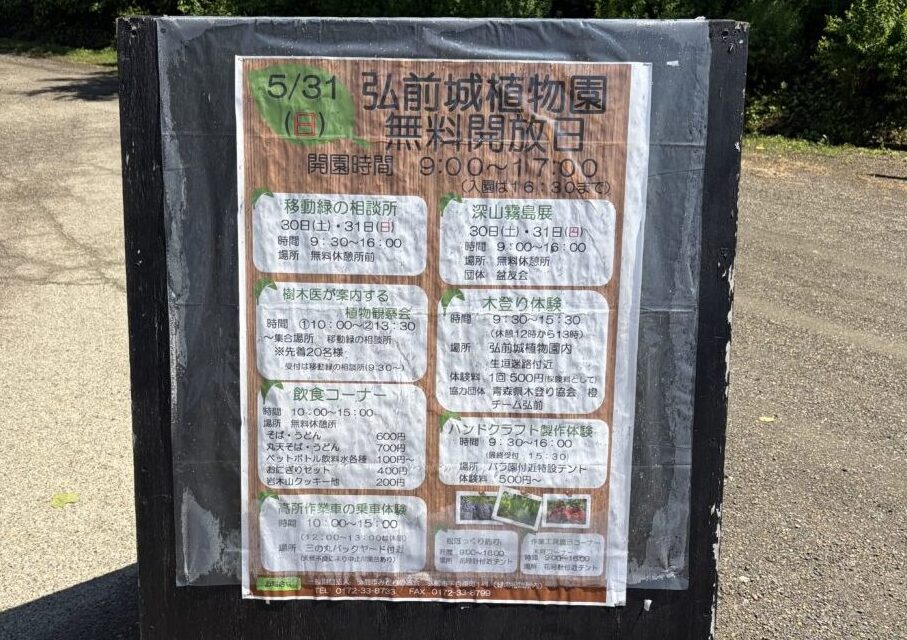 5/31
(日)
弘前城植物園
無料開放日
開園時間　9:00～17:00
(入園は16:30まで)
移動緑の相談所
30日(土)・31日(日)
時間　9:30～16:00
場所　無料休憩所前
深山霧島展
30日(土)・31日(日)
時間　9:00～16:00
場所　無料休憩所
団体　盆友会
樹木医が案内する
植物観察会
時間　①10:00～②13:30
～集合場所　移動緑の相談所
※先着20名様
受付は移動緑の相談所(9:30～)
木登り体験
時間　9:30～15:30
(休憩12時から13時)
場所　弘前城植物園内
生垣迷路付近
体験料　1回500円(保険料として)
協力団体　青森県木登り協会　橙
チーム弘前
飲食コーナー
時間　10:00～15:00
場所　無料休憩所
そば・うどん　600円
丸天そば・うどん　700円
ペットボトル飲料水各種　100円～
おにぎりセット　400円
岩木山クッキー他　200円
ハンドクラフト製作体験
時間　9:30～16:00
(最終受付　15:30)
場所　バラ園付近特設テント
体験料　500円～
高所作業車の乗車体験
時間　10:00～15:00
(12:00～13:00は休憩)
場所　三の丸バックヤード付近
時間　9:00～16:00
時間　9:00～16:00
TEL　0172-33-8733　FAX　0172-33-8799